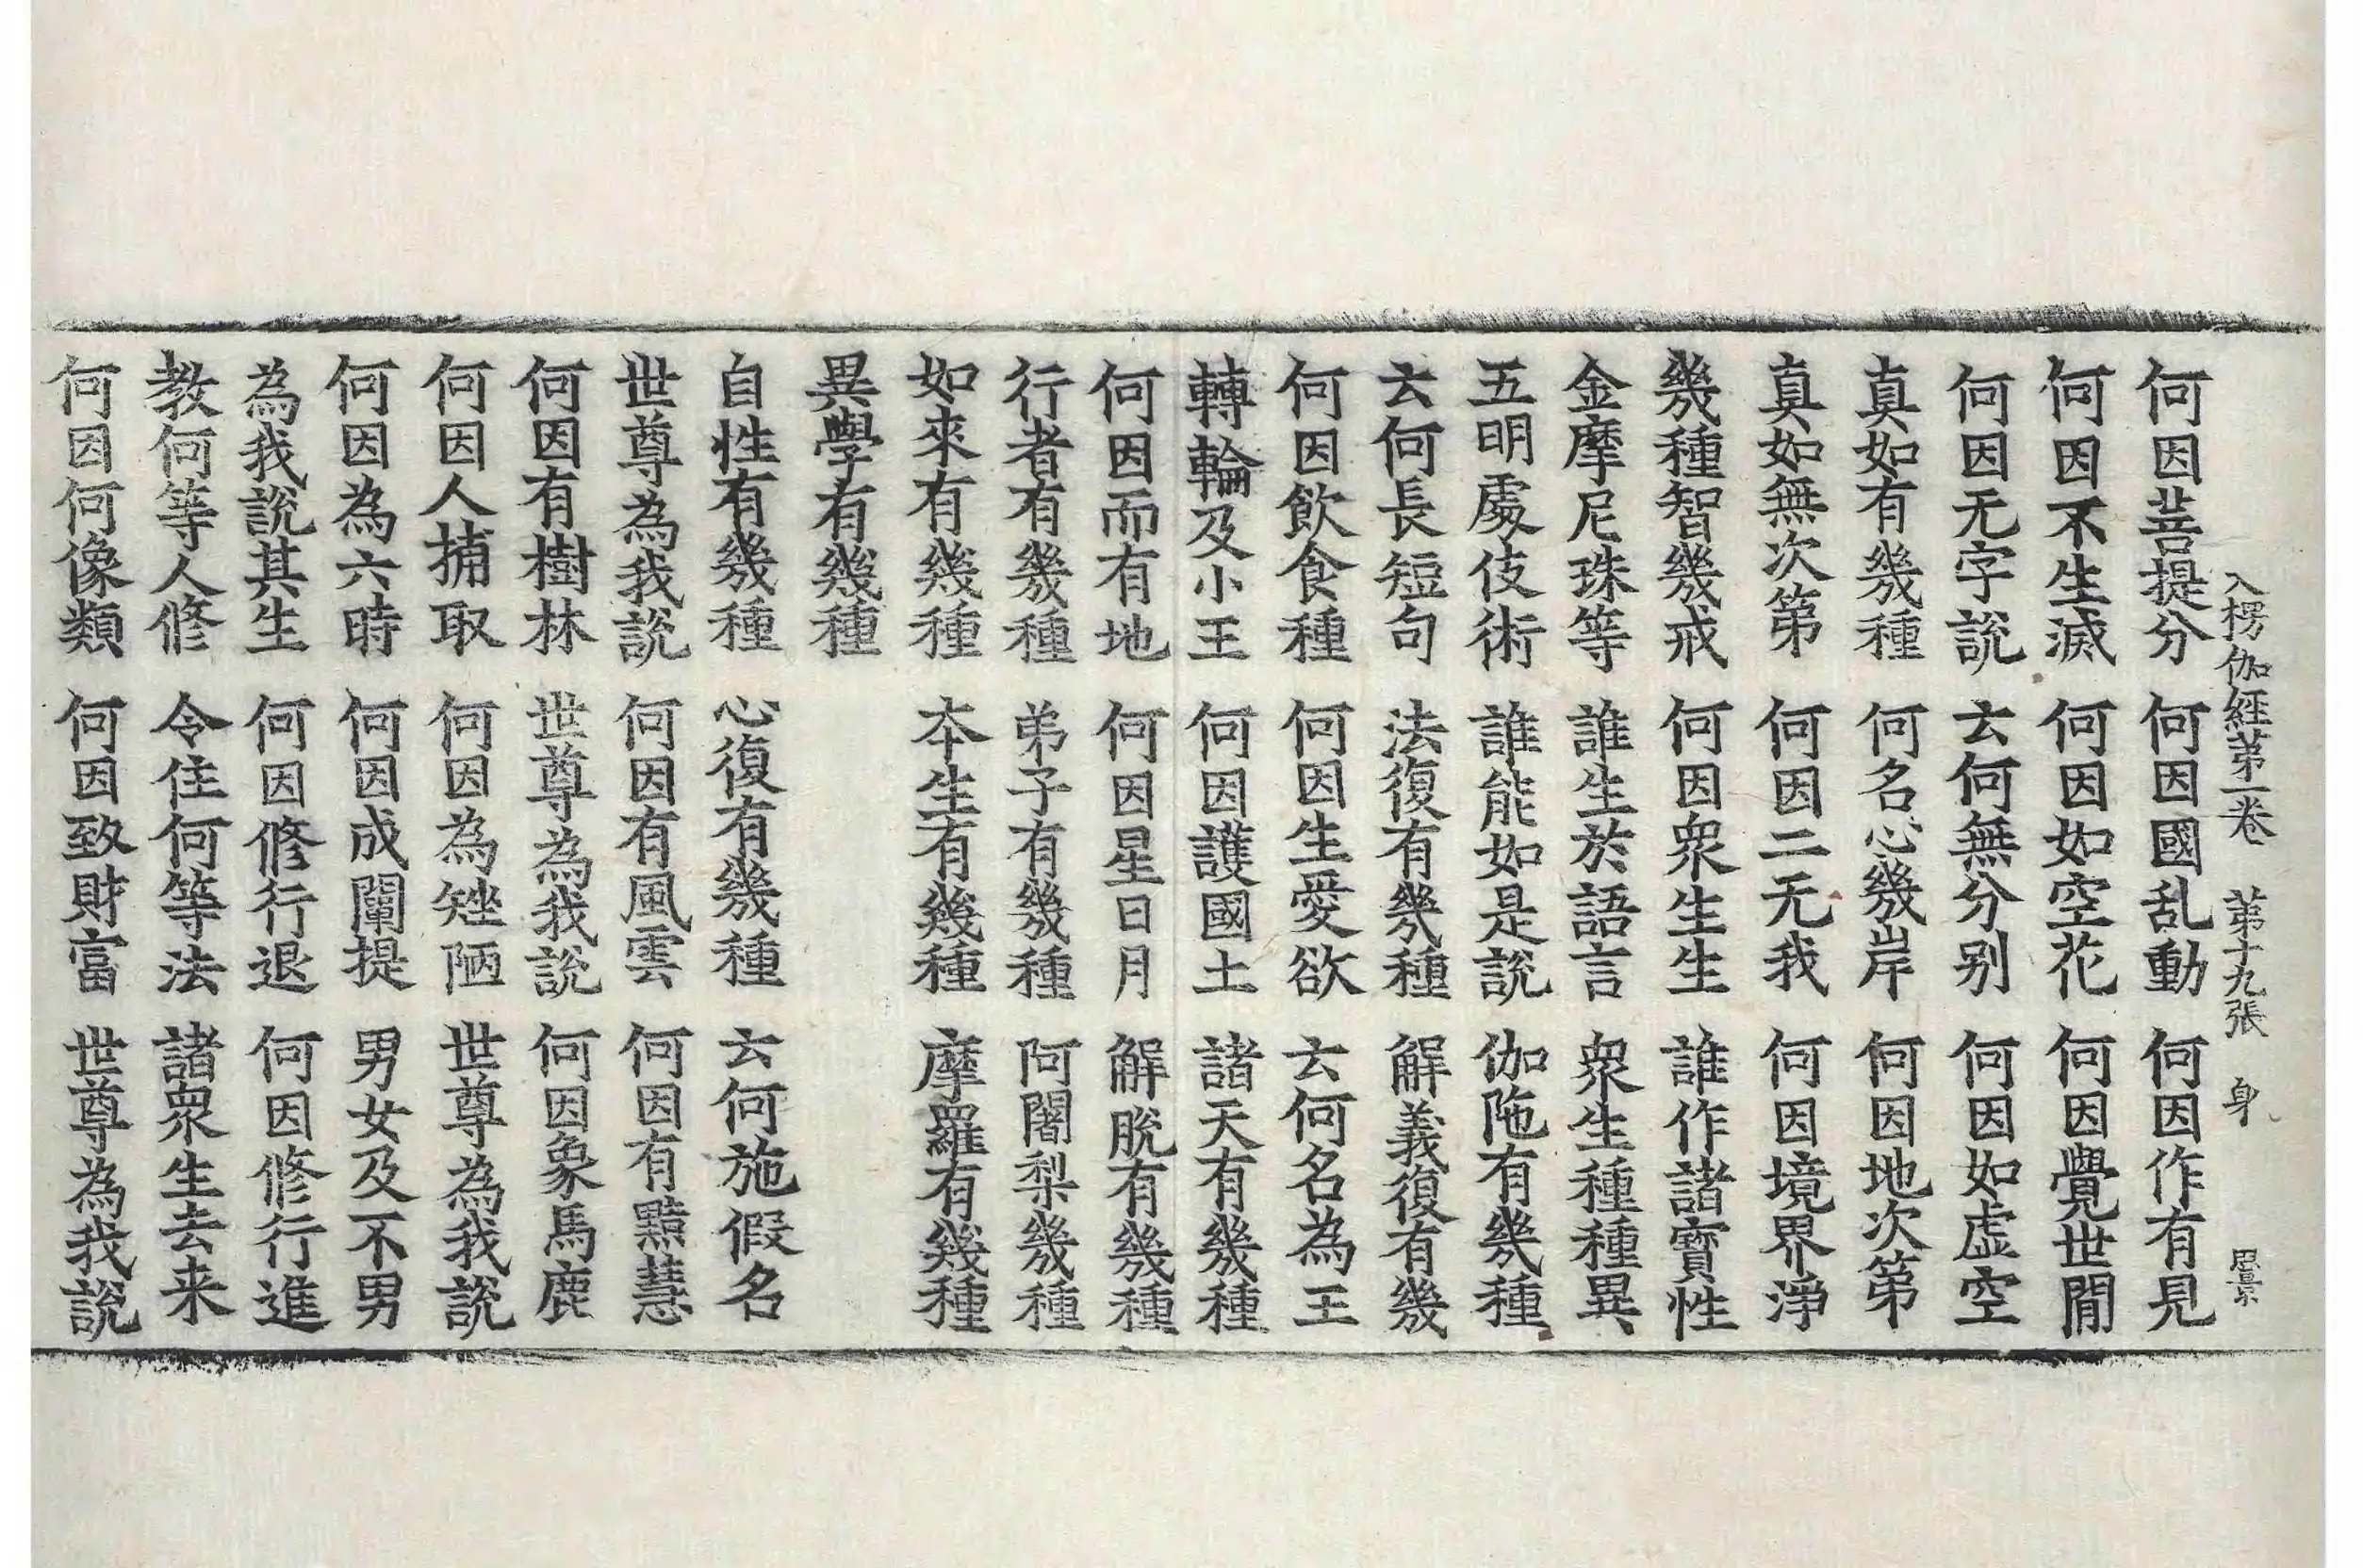 入楞伽經第一卷 第十九張 身 思景
何因菩提分 何因國乱動 何因作有見
何因不生滅 何因如空花 何因覺世閒
何因无字說 云何無分别 何因如虛空
真如有幾種 何名心幾岸 何因地次第
真如無次第 何因二无我 何因境界淨
幾種智幾戒 何因衆生生 誰作諸寶性
金摩尼珠等 誰生於語言 衆生種種異
五明處伎術 誰能如是說 伽陁有幾種
云何長短句 法復有幾種 解義復有幾
何因飲食種 何因生愛欲 云何名為王
轉輪及小王 何因護國土 諸天有幾種
何因而有地 何因星日月 解脫有幾種
行者有幾種 弟子有幾種 阿闍梨幾種
如來有幾種 本生有幾種 摩羅有幾種
異學有幾種
自性有幾種 心復有幾種 云何施假名
世尊為我說 何因有風雲 何因有黠慧
何因有樹林 世尊為我說 何因象馬鹿
何因人捕取 何因為矬陋 世尊為我說
何因為六時 何因成闡提 男女及不男
為我說其生 何因修行退 何因修行進
教何等人修 令住何等法 諸衆生去来
何因何像類 何因致財富 世尊為我說